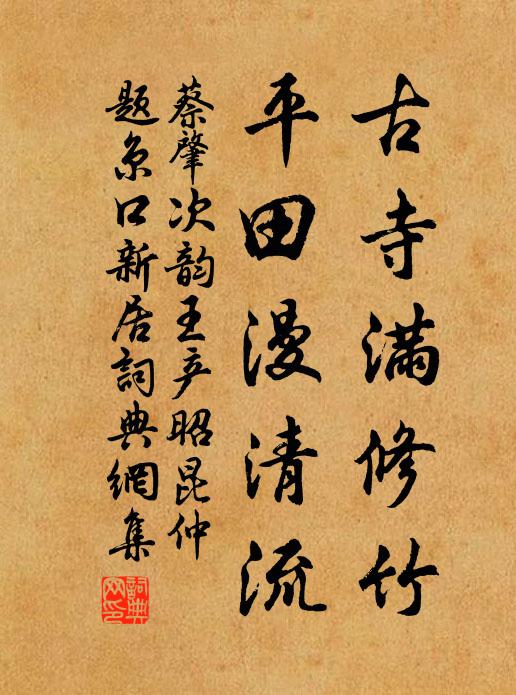 古寺滿修竹
平田漫清流
蔡肇次韵王彦昭昆仲
题京口新居詞典網集
詞典網印